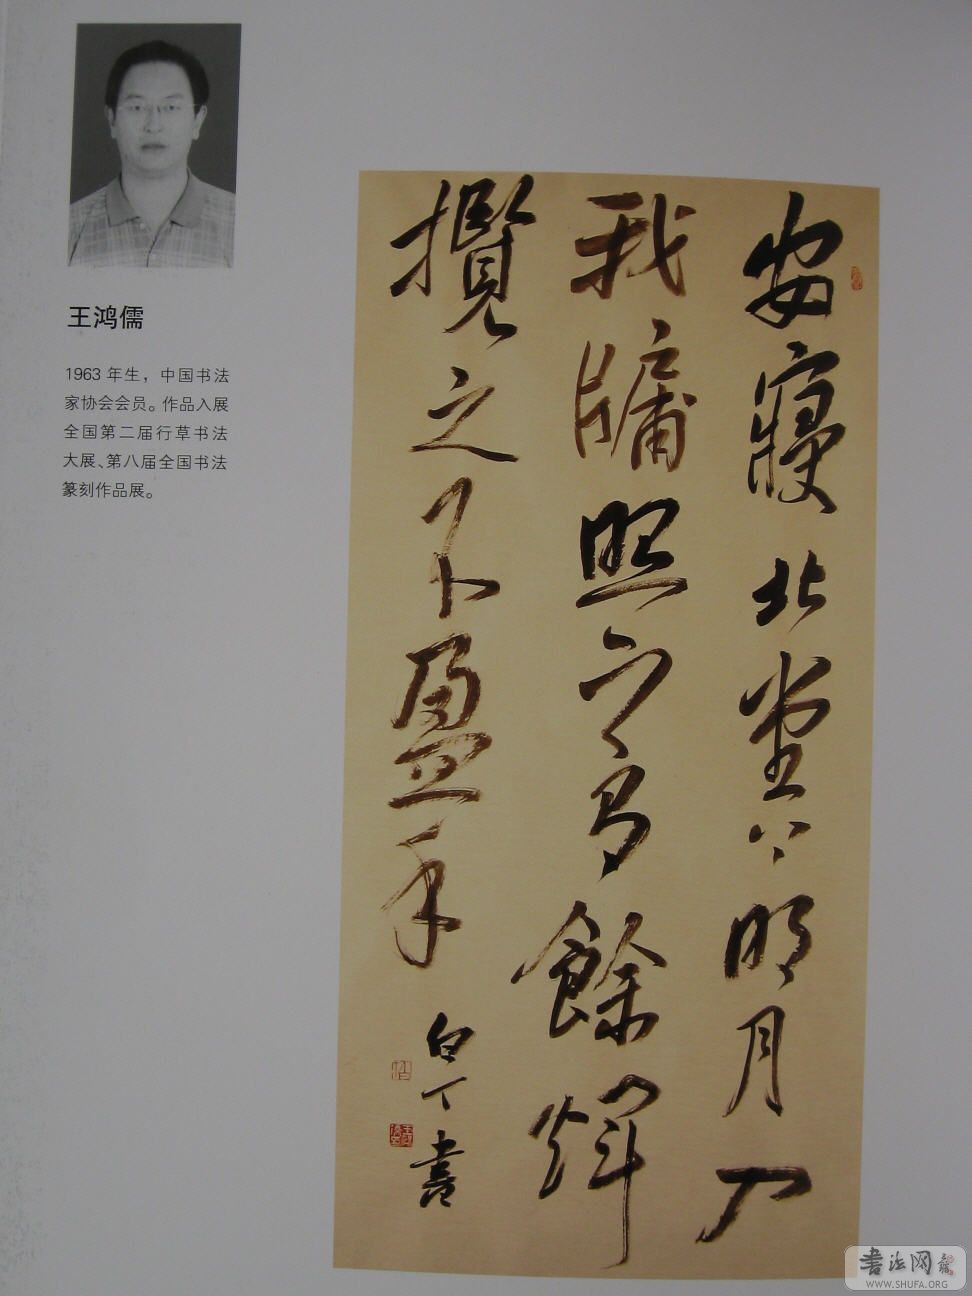 王鸿儒
1963 年生，中国书法
家协会会员。作品入展
全国第二届行草书法
大展、第八届全国书法
篆刻作品展。
安寝北堂上明月入
我牖照之有餘輝
攬之不盈手
白丁書
書法网
WWW.SHUFA.ORG